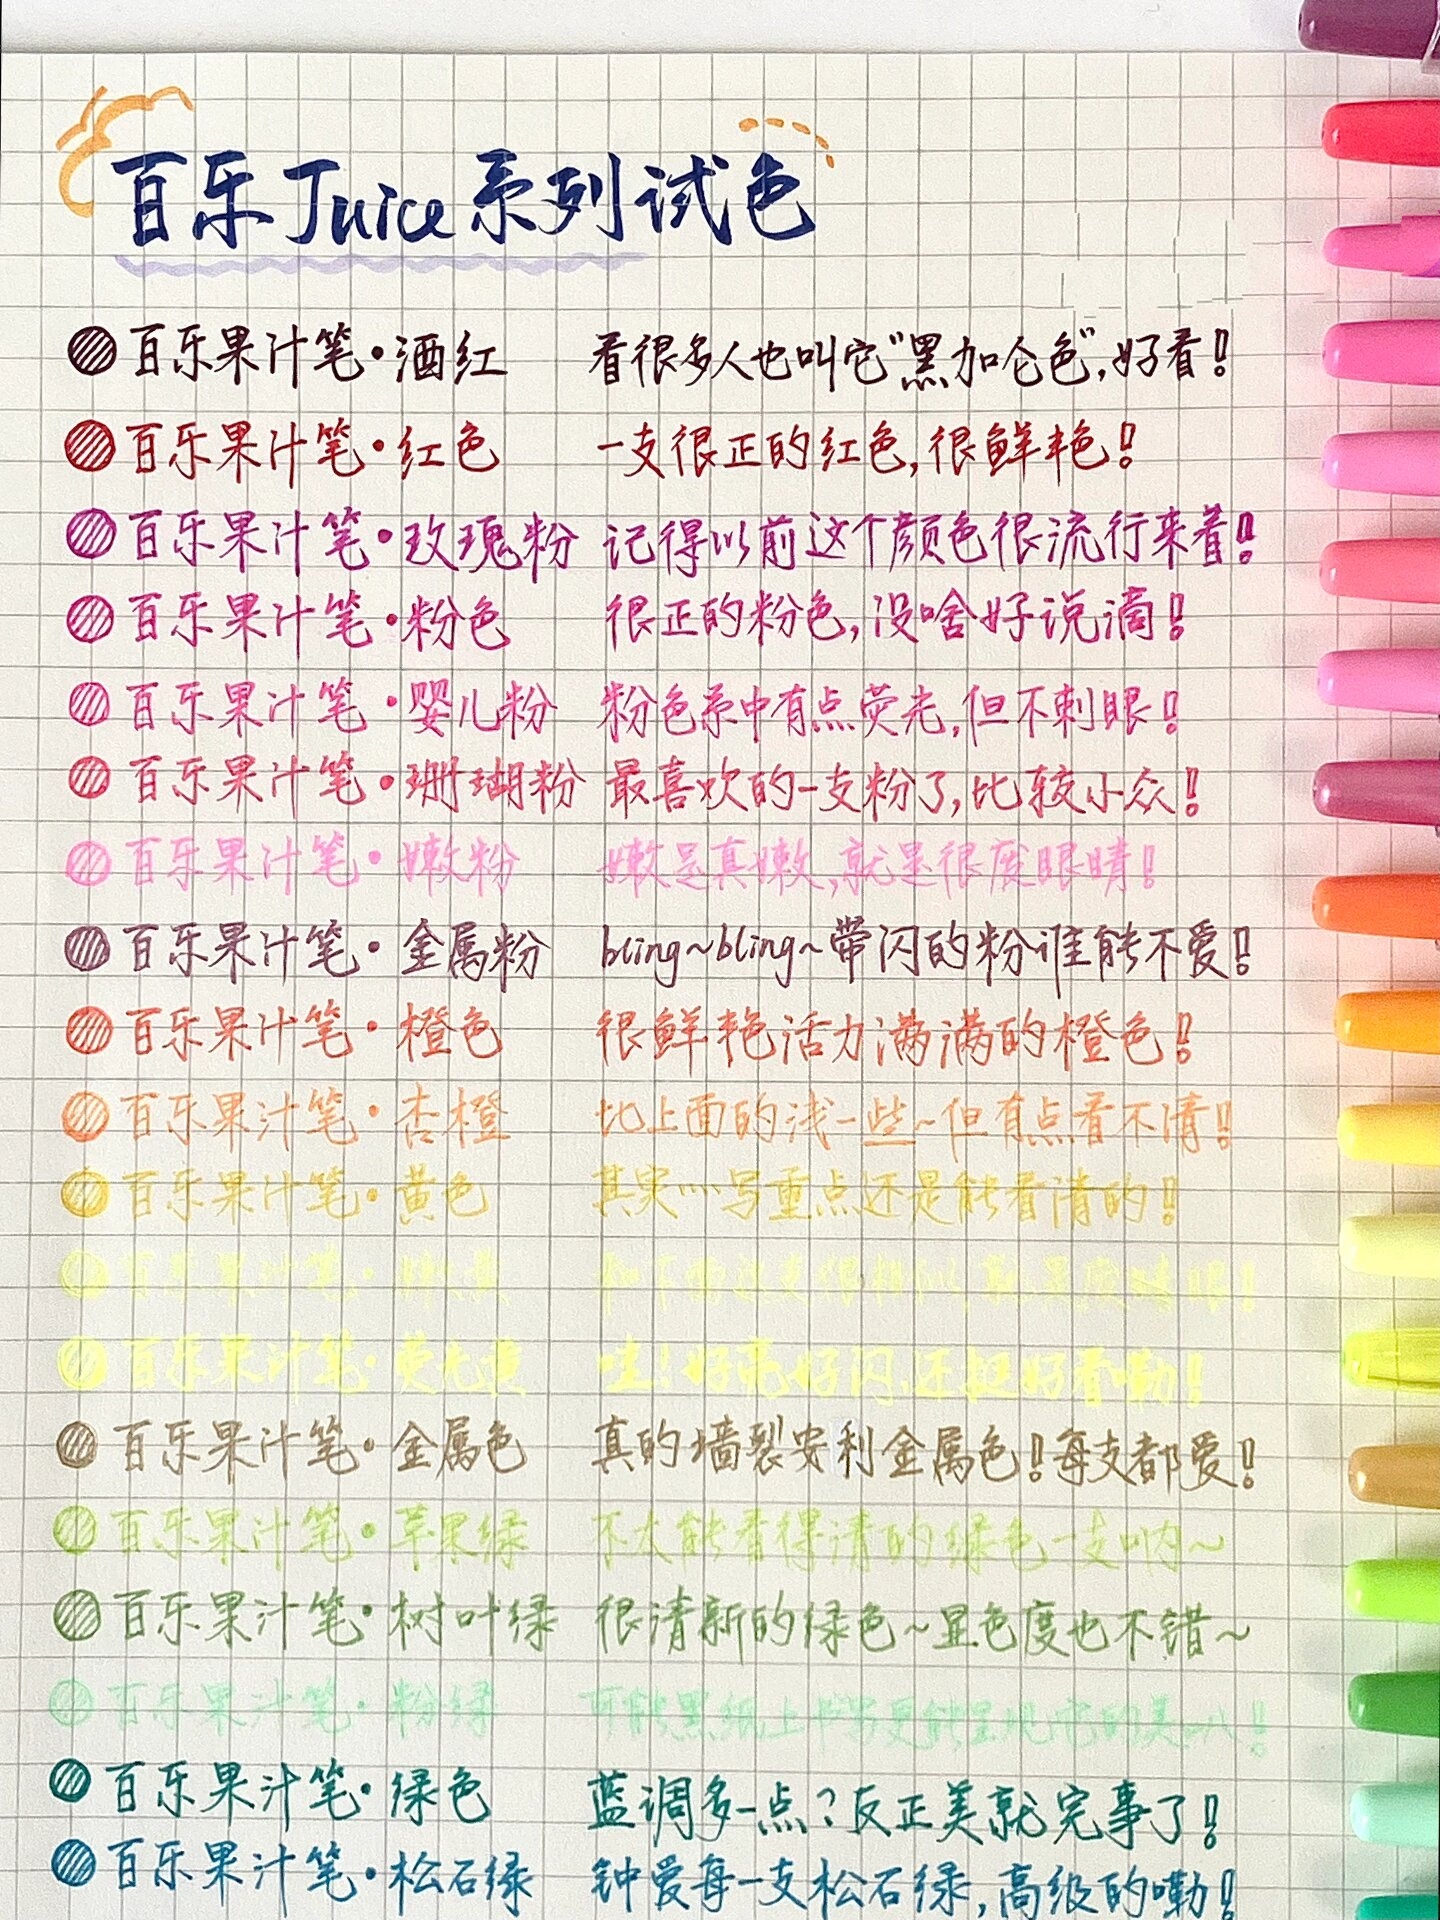 百乐Juice系列试色
百乐果汁笔·酒红 看很多人也叫它"黑加仑色",好看!
百乐果汁笔·红色 一支很正的红色,很鲜艳!
百乐果汁笔·玫瑰粉 记得以前这个颜色很流行来着!
百乐果汁笔·粉色 很正的粉色,没啥好说滴!
百乐果汁笔·婴儿粉 粉色系中有点荧光,但不刺眼!
百乐果汁笔·珊瑚粉 最喜欢的一支粉了,比较小众!
百乐果汁笔·嫩粉 嫩是真嫩,就是很废眼睛!
百乐果汁笔·金属粉 bling~bling~带闪的粉谁能不爱!
百乐果汁笔·橙色 很鲜艳活力满满的橙色!
百乐果汁笔·杏橙 比上面的浅一些~但有点看不清!
百乐果汁笔·黄色 其实……写重点还是能看清的!
百乐果汁笔·嫩黄
百乐果汁笔·荧光黄 哇!好亮好闪,还挺好看嘞!
百乐果汁笔·金属色 真的墙裂安利金属色!每支都爱!
百乐果汁笔·苹果绿 不太能看得清的绿色一支呐~
百乐果汁笔·树叶绿 很清新的绿色~显色度也不错~
百乐果汁笔·粉绿 可能黑纸上书写更能呈现它的美叭!
百乐果汁笔·绿色 蓝调多一点?反正美就完事了!
百乐果汁笔·松石绿 钟爱每一支松石绿,高级的嘞!